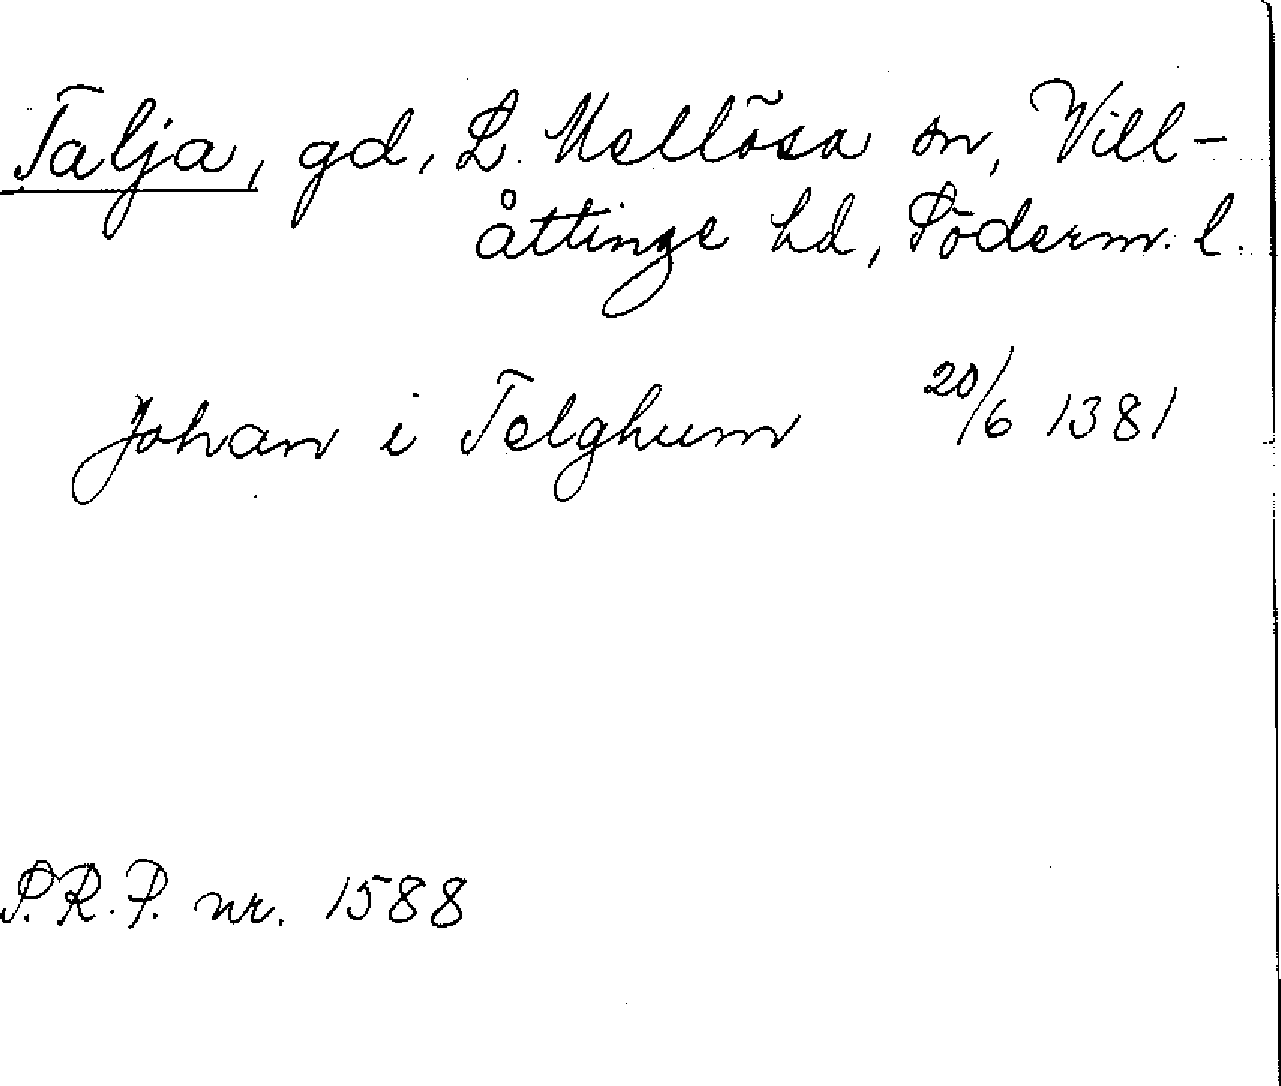 Talja, gd, L. Mellösa sn, Vill-
åttinge hd, Söderm. l.
Johan i Telghum 20/6 1381
S.R.P. nr. 1588